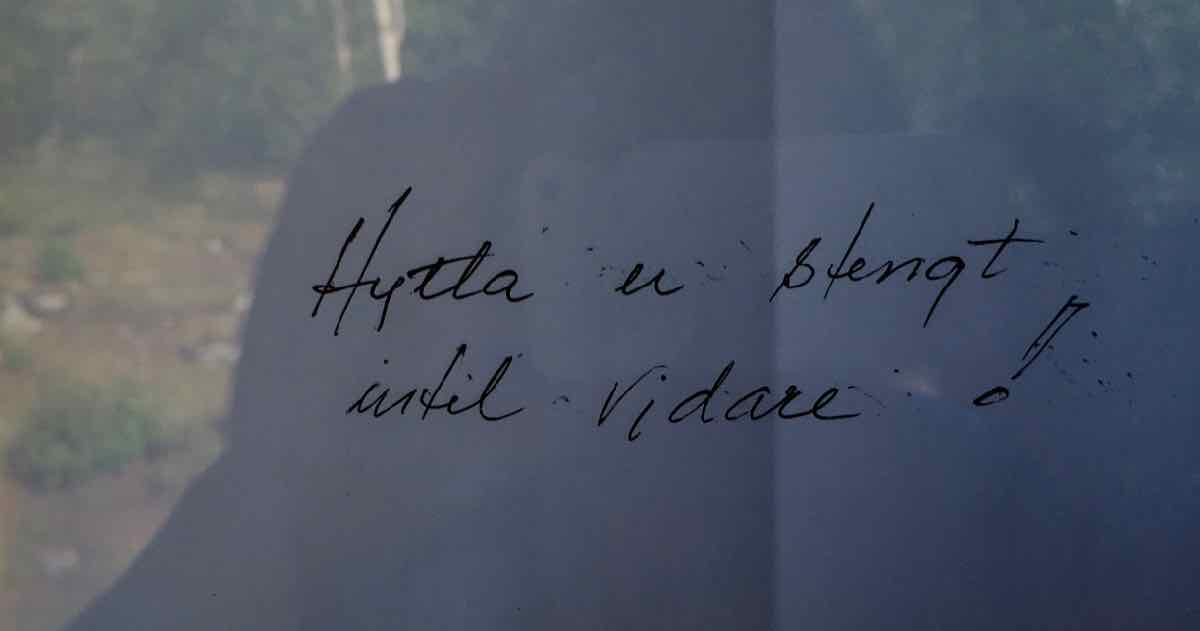 Hytta er stengt
intil vidare !